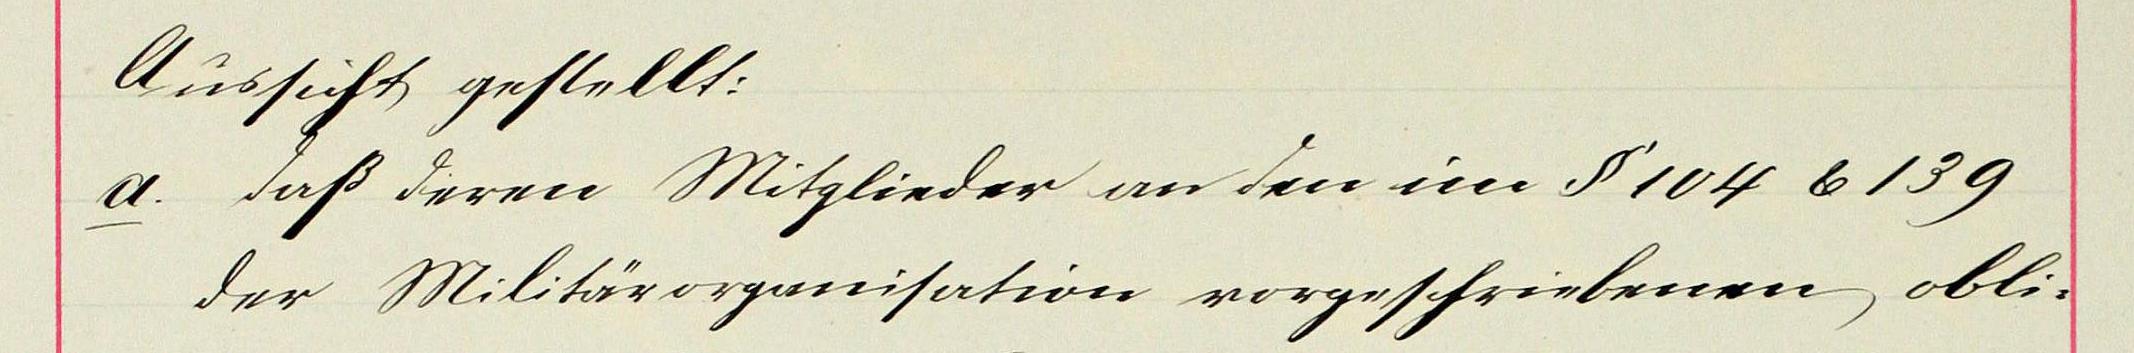 Aussicht gestellt:
a. daß deren Mitglieder an den im § 104 & 139
der Militärorganisation vorgeschriebenen obli-